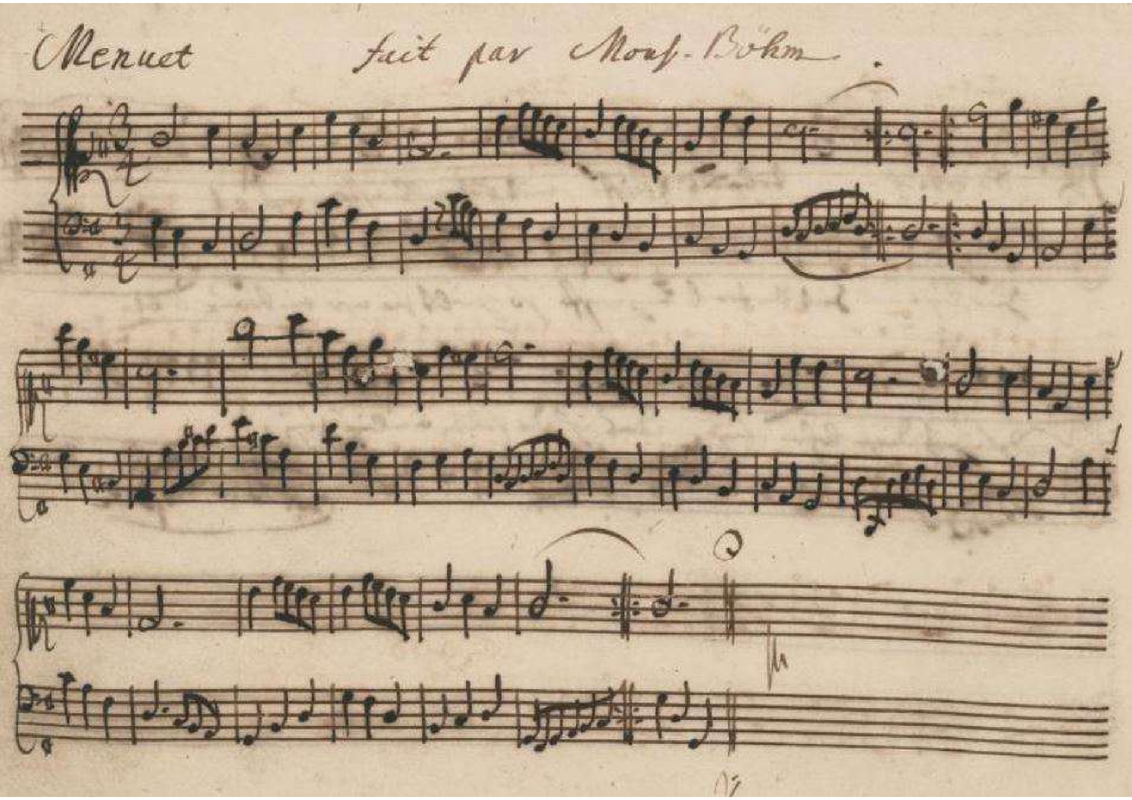 Menuet fait par Mons. Böhm.
3
4
3
4